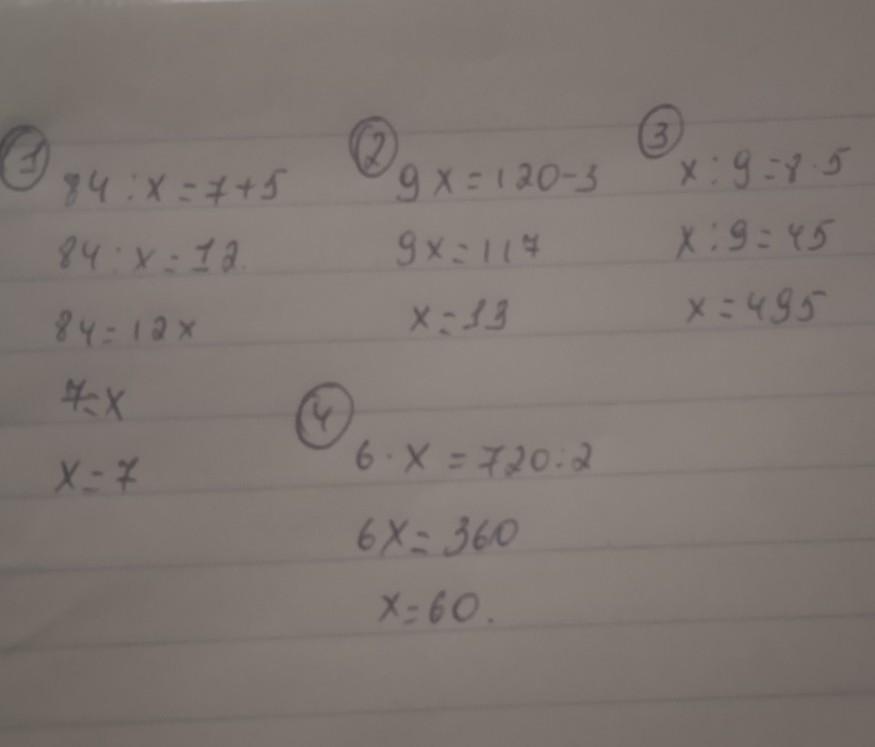 ①
84 : x = 7 + 5
84 : x = 12.
84 = 12x
7 = x
x = 7
②
9x = 120 - 3
9x = 117
x = 13
③
x : 9 = 8 · 5
x : 9 = 45
x = 495
④
6 · x = 720 : 2
6x = 360
x = 60.